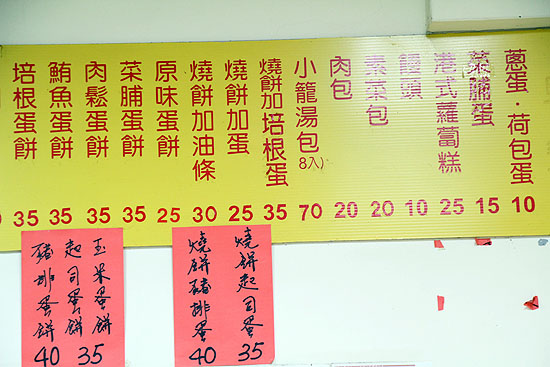 蔥蛋·荷包蛋 10
菜脯蛋 15
港式蘿蔔糕 25
饅頭 10
素菜包 20
肉包 20
小籠湯包(8入) 70
燒餅加培根蛋 35
燒餅加蛋 25
燒餅加油條 30
原味蛋餅 25
菜脯蛋餅 35
肉鬆蛋餅 35
鮪魚蛋餅 35
培根蛋餅 35
燒餅起司蛋 35
燒餅豬排蛋 40
玉米蛋餅
起司蛋餅 35
豬排蛋餅 40